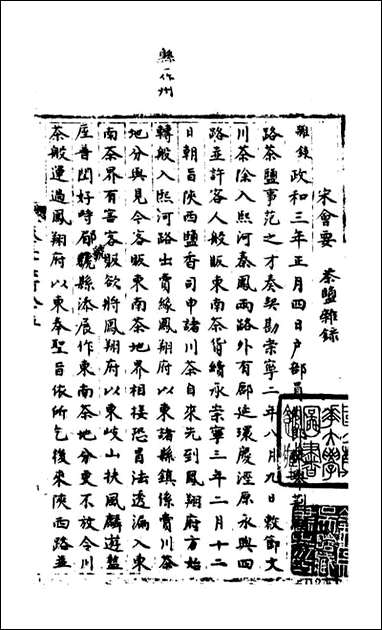 縣一作州
宋會要 茶鹽雜錄
雜錄政和三年正月四日戶部員
路茶鹽事范之才奏契勘崇寧二年八月九日敕節文
川茶除入熙河秦鳳兩路外有鄜延環慶涇原永興四
路並許客人般販東南茶貨續承崇寧三年二月十二
日朝旨陝西鹽香司申諸川茶自來先到鳳翔府方始
轉般入熙河路出賣緣鳳翔府以東諸縣鎮係賣川茶
地分與見今客販東南茶地界相接恐冒法透漏入東
南茶界有害客販欲將鳳翔府以東岐山扶風麟遊盩
厔普閏好時郿虢縣添展作東南茶地分更不放令川
茶般運過鳳翔府以東奉聖旨依所乞後來陝西路並